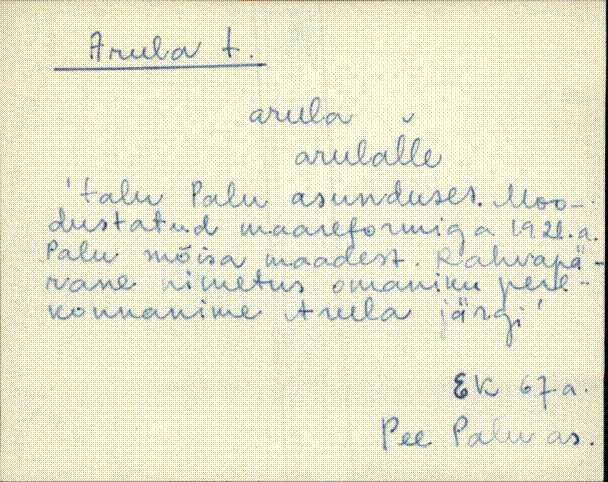 Arula t.
arula
arulal̆le
'talu Palu asunduses. Moo-
dustatud maareformiga 1921.a.
Palu mõisa maadest. Rahvapä-
rane nimetus omaniku pere-
konnanime Arula järgi'
EK 67 a.
Pee Palu as.